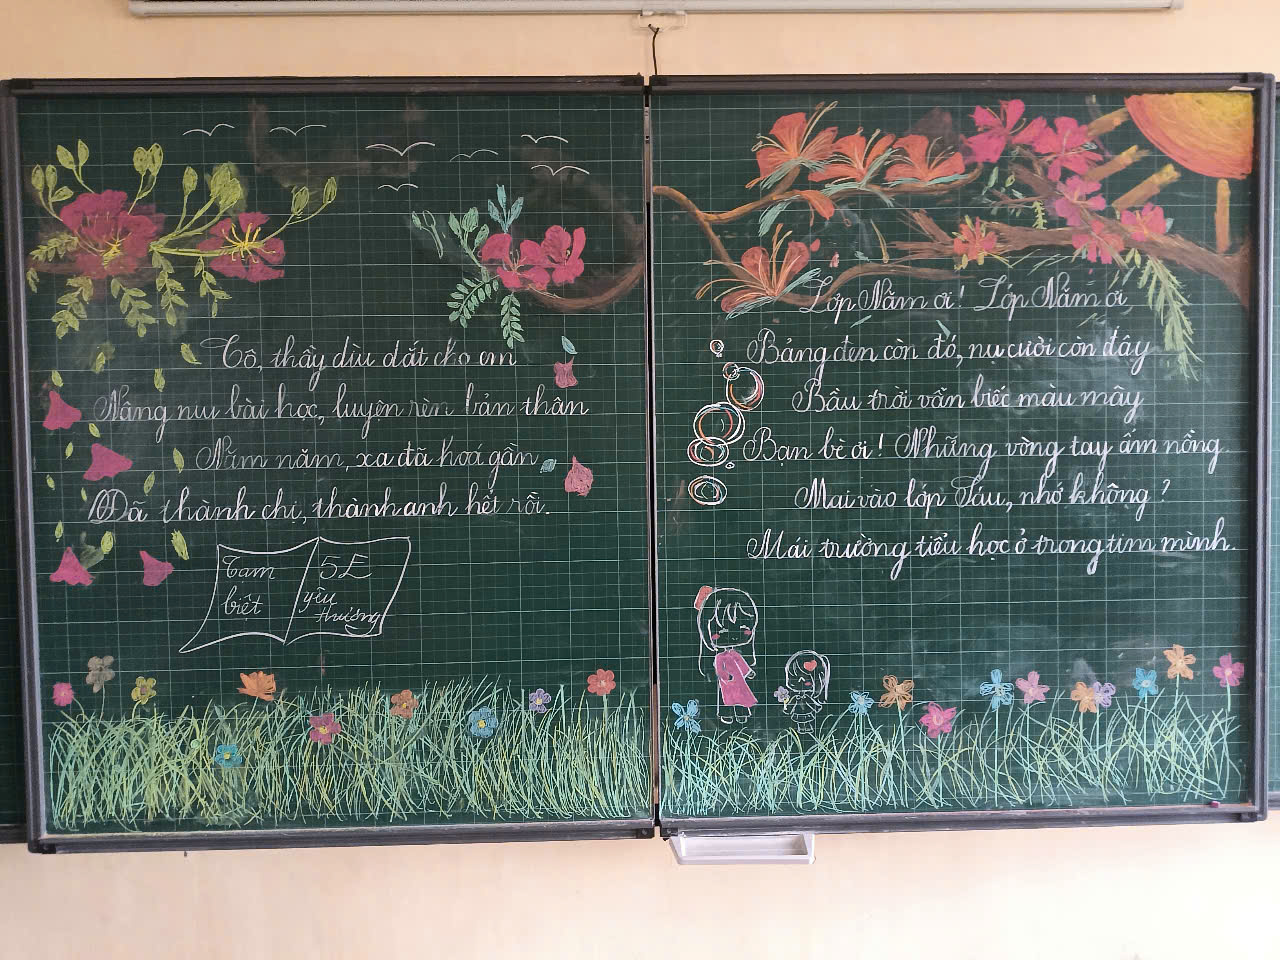 Cô, thầy dìu dắt cho em
Nâng niu bài học, luyện rèn bản thân
Năm năm, xa đã hoá gần
Đã thành chị, thành anh hết rồi.
Tạm
biệt
5E
yêu
thương
Lớp Năm ơi! Lớp Năm ơi
Bảng đen còn đó, nụ cười còn đây
Bầu trời vẫn biếc màu mây
Bạn bè ơi! Những vòng tay ấm nồng.
Mai vào lớp Sáu, nhớ không?
Mái trường tiểu học ở trong tim mình.